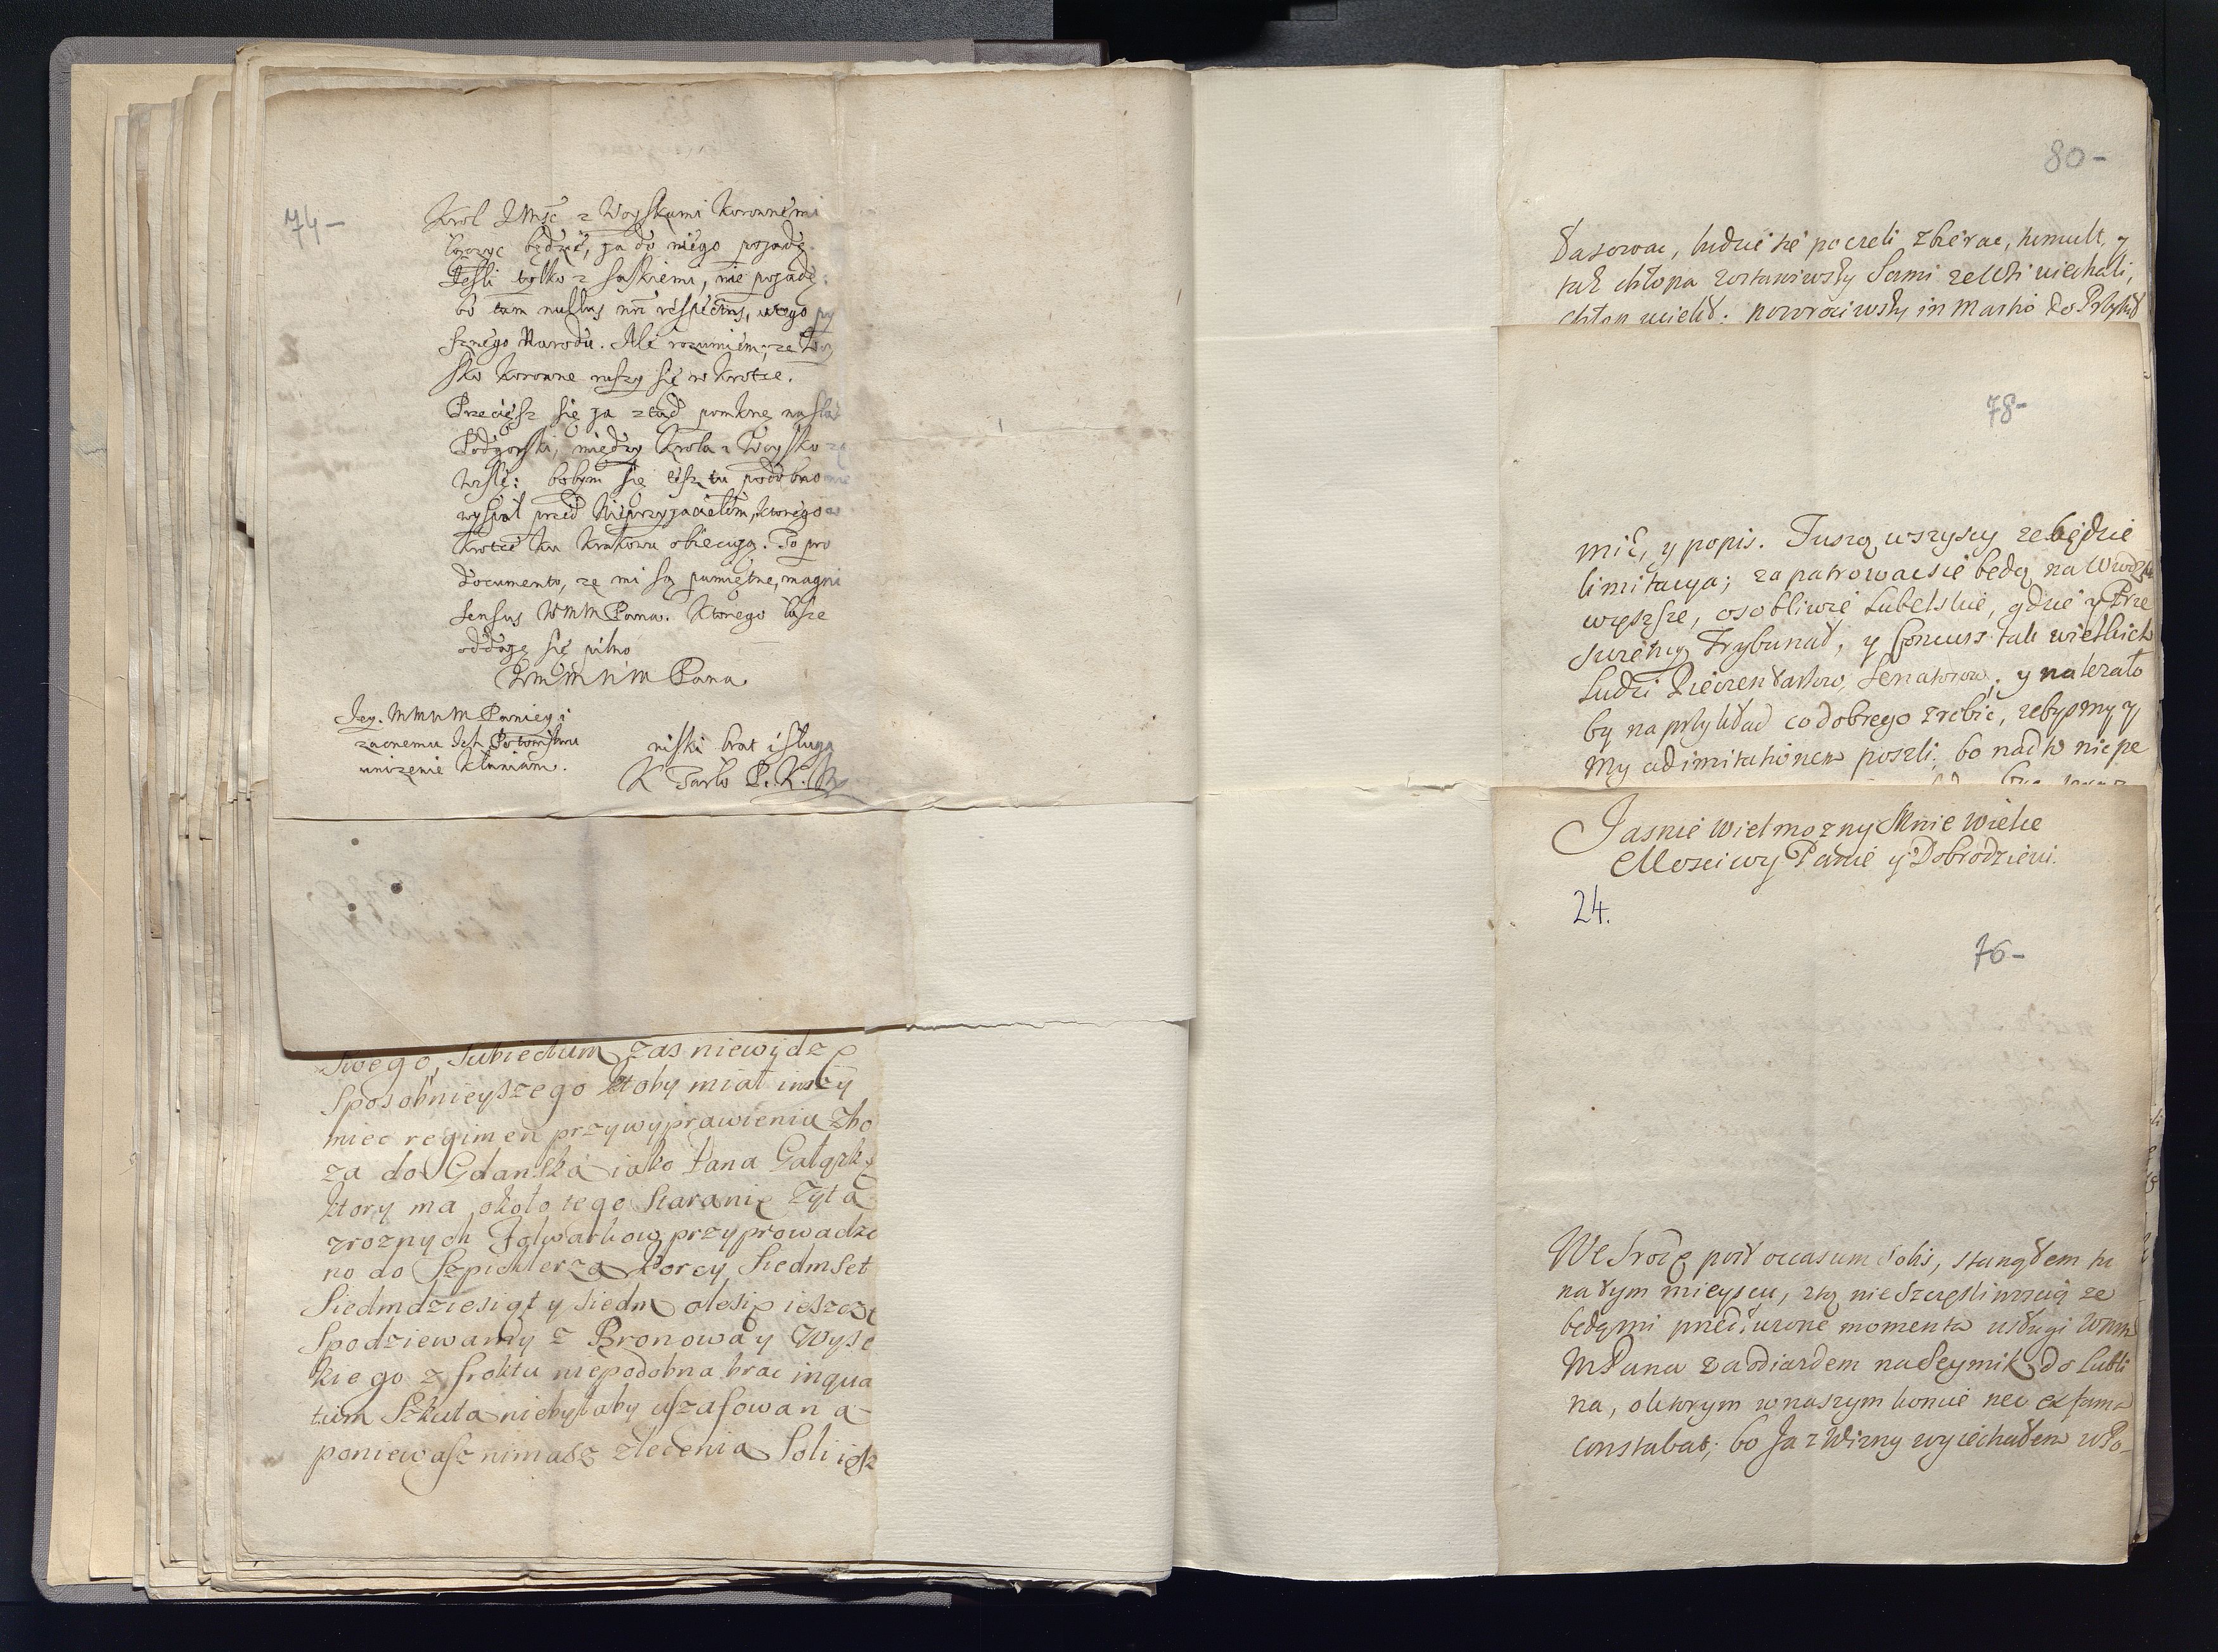 74-
Krol JMść z Woyskami Koronnemi
łączyc będzie, ja do niego pojadę.
Jeśli tylko z saskiemi, nie pojadę:
bo tam nullus respectus,
sznego Narodu. Ale rozumiem, ze Woy
sko Koronne ruszy się w krotce.
Przecięsz się ja ztąd pomknę na
Podgorski, między Krola i Woysko
Wisłę: bobym się tu podobno
wyspał przed Nieprzyjacielem, ktorego
krotce ku Krakowu obiecują. To pro
documento, ze mi są pamiętne, magni
sensus WMM Pana. Ktorego łasce
oddaję się pilno
WMMM Pana
Jey. MMMM Paniey i
zacnemu Ich Potomstwu
unizenie kłaniam.
niski brat i sługa
K Tarło
swego, Subiectum zas niewidzę
Sposobnieyszego ktoby miał inszy
miec regimen przy wyprawieniu Zbo
za do Gdanska iako Pana
ktory ma około tego staranie Zyta
zroznych Folwarkow przyprowadzo
no do Szpichlerza Korcy Siedmset
Siedmdziesiąt y siedm alesię ieszcze
Spodziewamy z Bronowa y Wyso
kiego z froktu niepodobna brac inqua
tum Szkuta niebyłaby uszasowana
poniewasz nimasz zlecenia Soli
80-
ludzie się poczeli zbierac, tumult, y
tak chłopa zostawiwszy Sami
chłop powrociwszy in Martio do
78-
mić, y popis. Tuszą wszyscy ze będzie
limitacya; zapatrowac się będą na
większe, osobliwie Lubelskie, gdzie y
Trybunał, y koncurs tak wielkich
Ludzi Senatorow; y nalezało
by na przykład co dobrego zrobic, zebysmy y
my ad imitationem poszli; bo nadto nic pe
Jasnie Wielmozny Mnie Wielce
Mosciwy Panie y Dobrodzieiu.
24.
76-
We Srodę post occasum Solis, stanąłem tu
na tym mieyscu, ztą nieszczęsliwoscią ze
będącmi momenta usługi
MPana na Seymik do Lubli
na, oktorym wnaszym koncie nec ex fama
constabat; bo Ja z wyiechałem wPo-